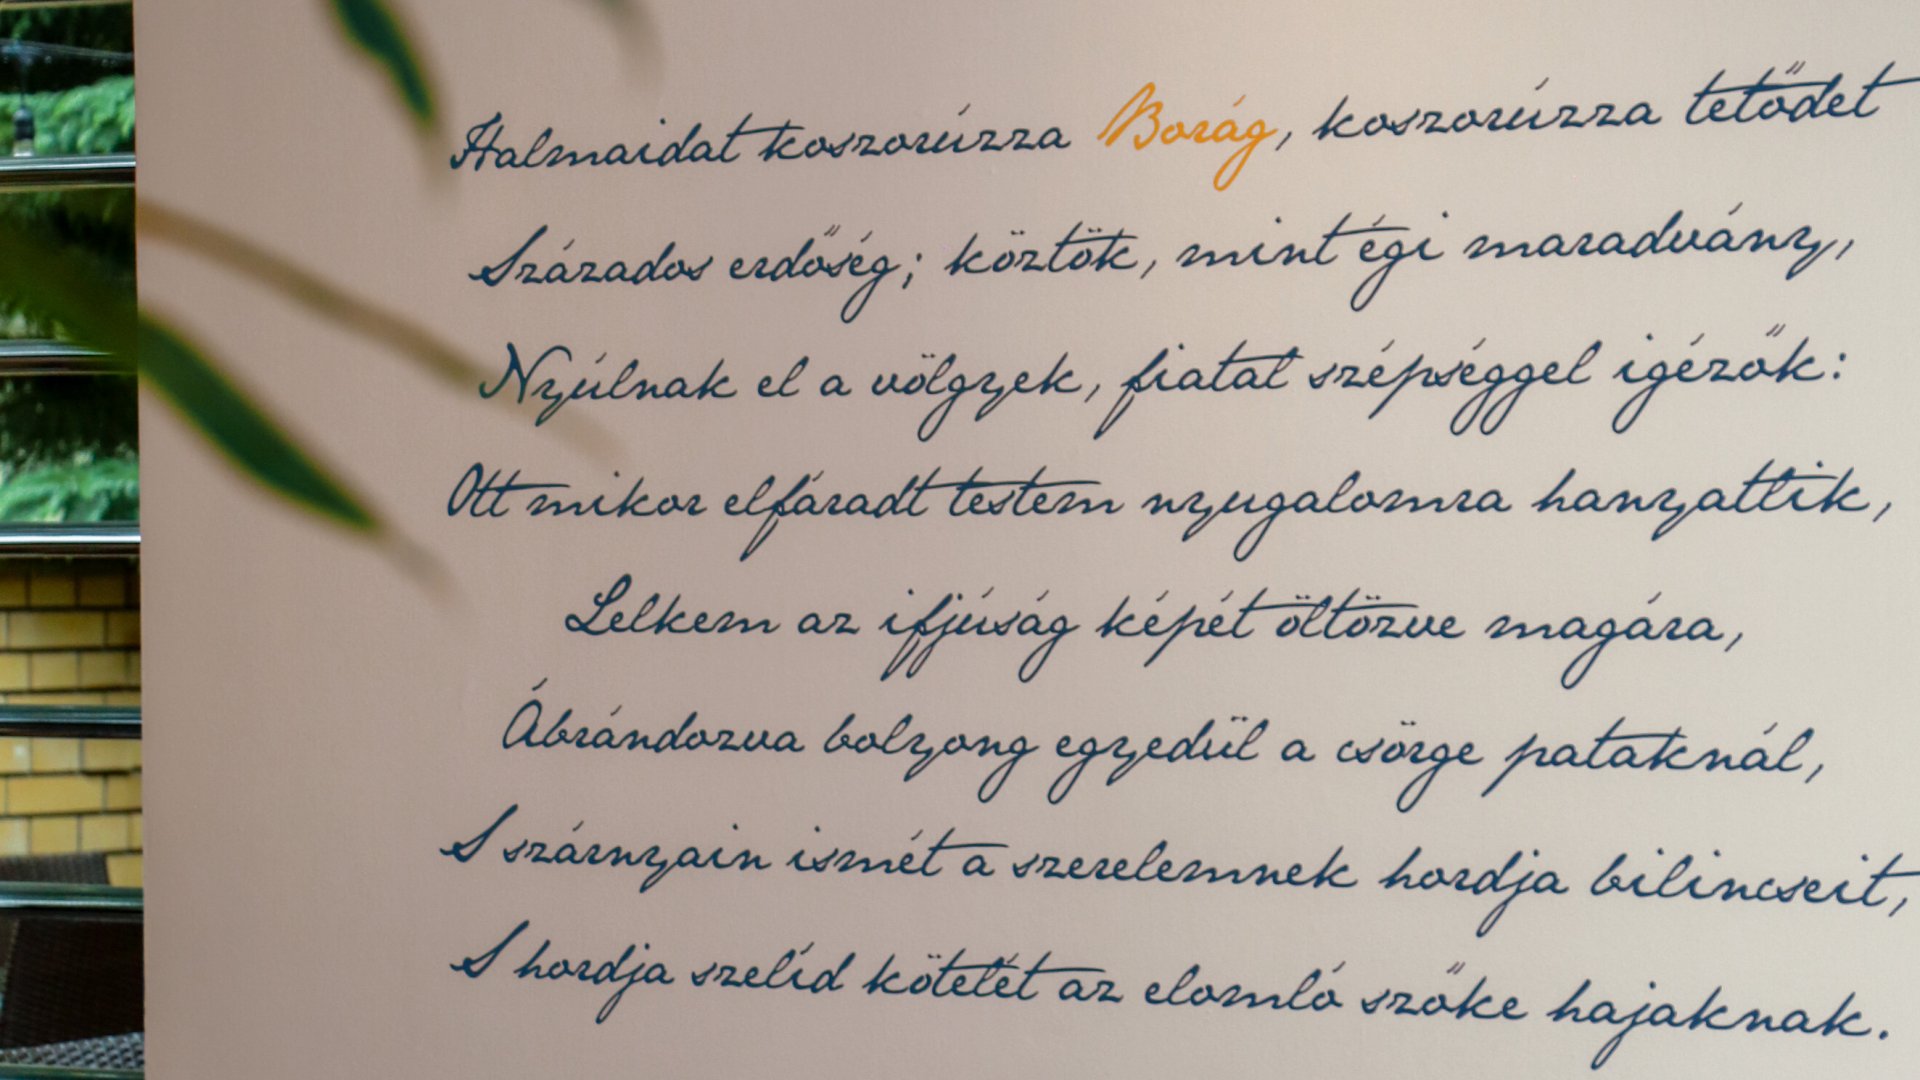 Halmaidat koszorúzza Borág, koszorúzza tetődet
Százados erdőség; köztök, mint égi maradvány,
Nyúlnak el a völgyek, fiatal szépséggel igézők:
Ott mikor elfáradt testem nyugalomra hanyatlik,
Lelkem az ifjúság képét öltözve magára,
Ábrándozva bolyong egyedül a csörge pataknál,
S szárnyain ismét a szerelemnek hordja bilincseit,
S hordja szelíd kötelét az elomló szőke hajaknak.